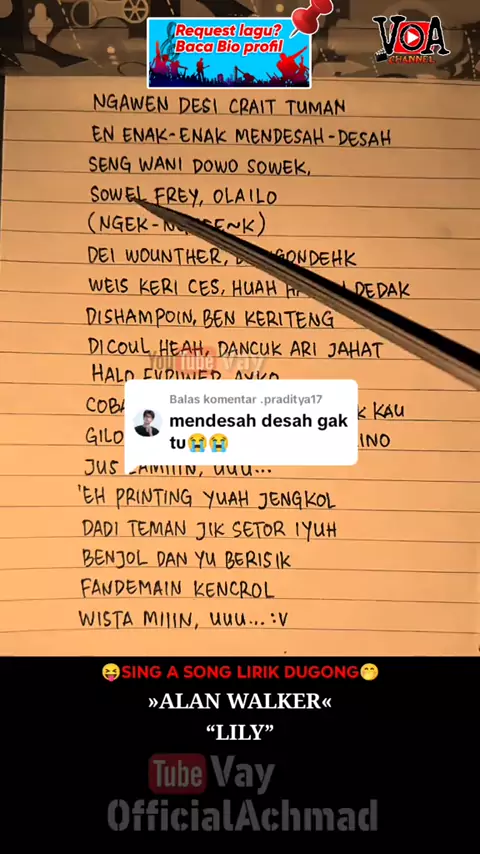 Request lagu?
Baca Bio profil
VOA
CHANNEL
NGAWEN DESI CRAIT TUMAN
EN ENAK-ENAK MENDESAH-DESAH
SENG WANI DOWO SOWEK,
SOWEL FREY, OLAILO
DEI WOUNTHER,
WEIS KERI CES, HUAH DEDAK
DISHAMPOIN, BEN KERITENG
DICOUL HEAH, DANCUK ARI JAHAT
YouTube Vay
HALO
Balas komentar .praditya17
mendesah desah gak
tu😭😭
KAU
JUS UUU...
'EH PRINTING YUAH JENGKOL
DADI TEMAN JIK SETOR IYUH
BENJOL DAN YU BERISIK
FANDEMAIN KENCROL
WISTA MIIIN, UUU... :V
😝SING A SONG LIRIK DUGONG🤭
»ALAN WALKER«
“LILY”
Tube Vay
OfficialAchmad